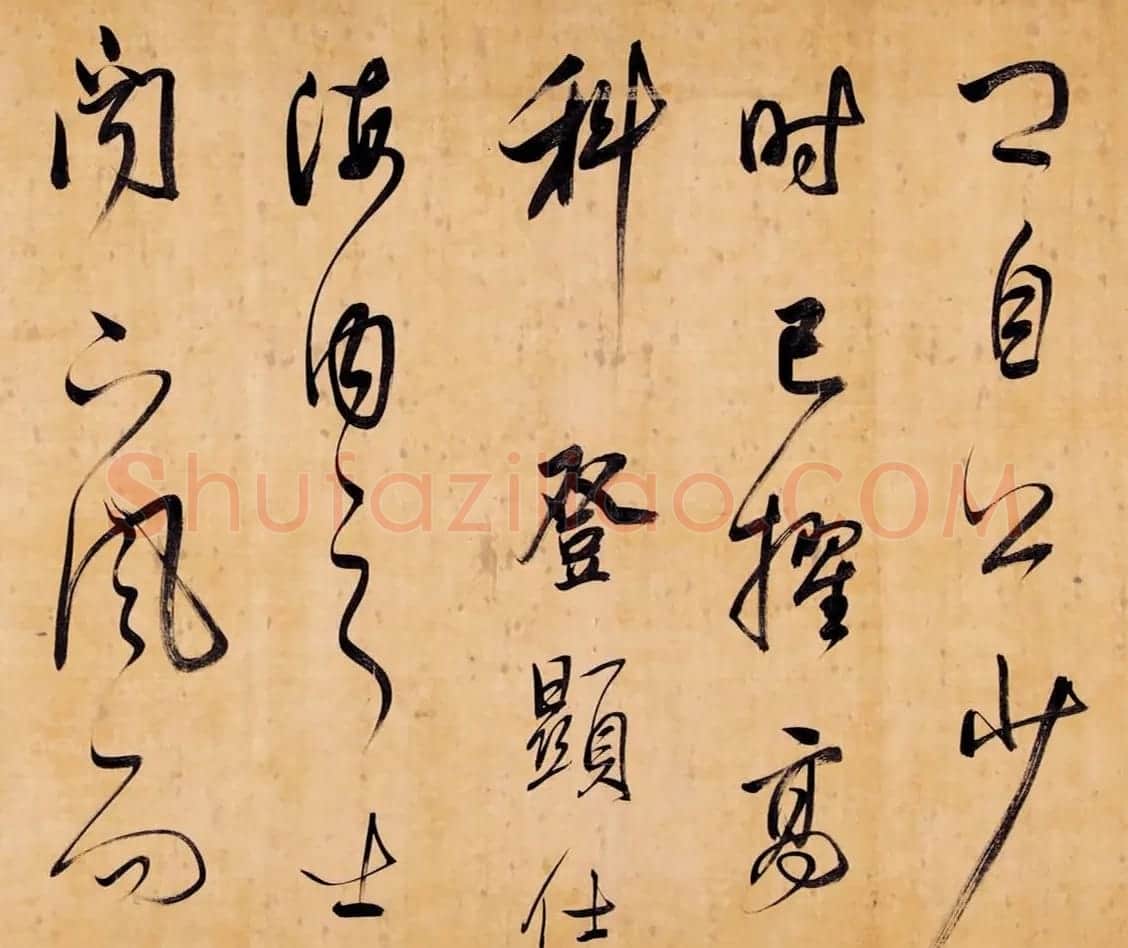 自公少
时已擢高
科登顯仕
海内之士
聞下風而
Shufaziliao.COM